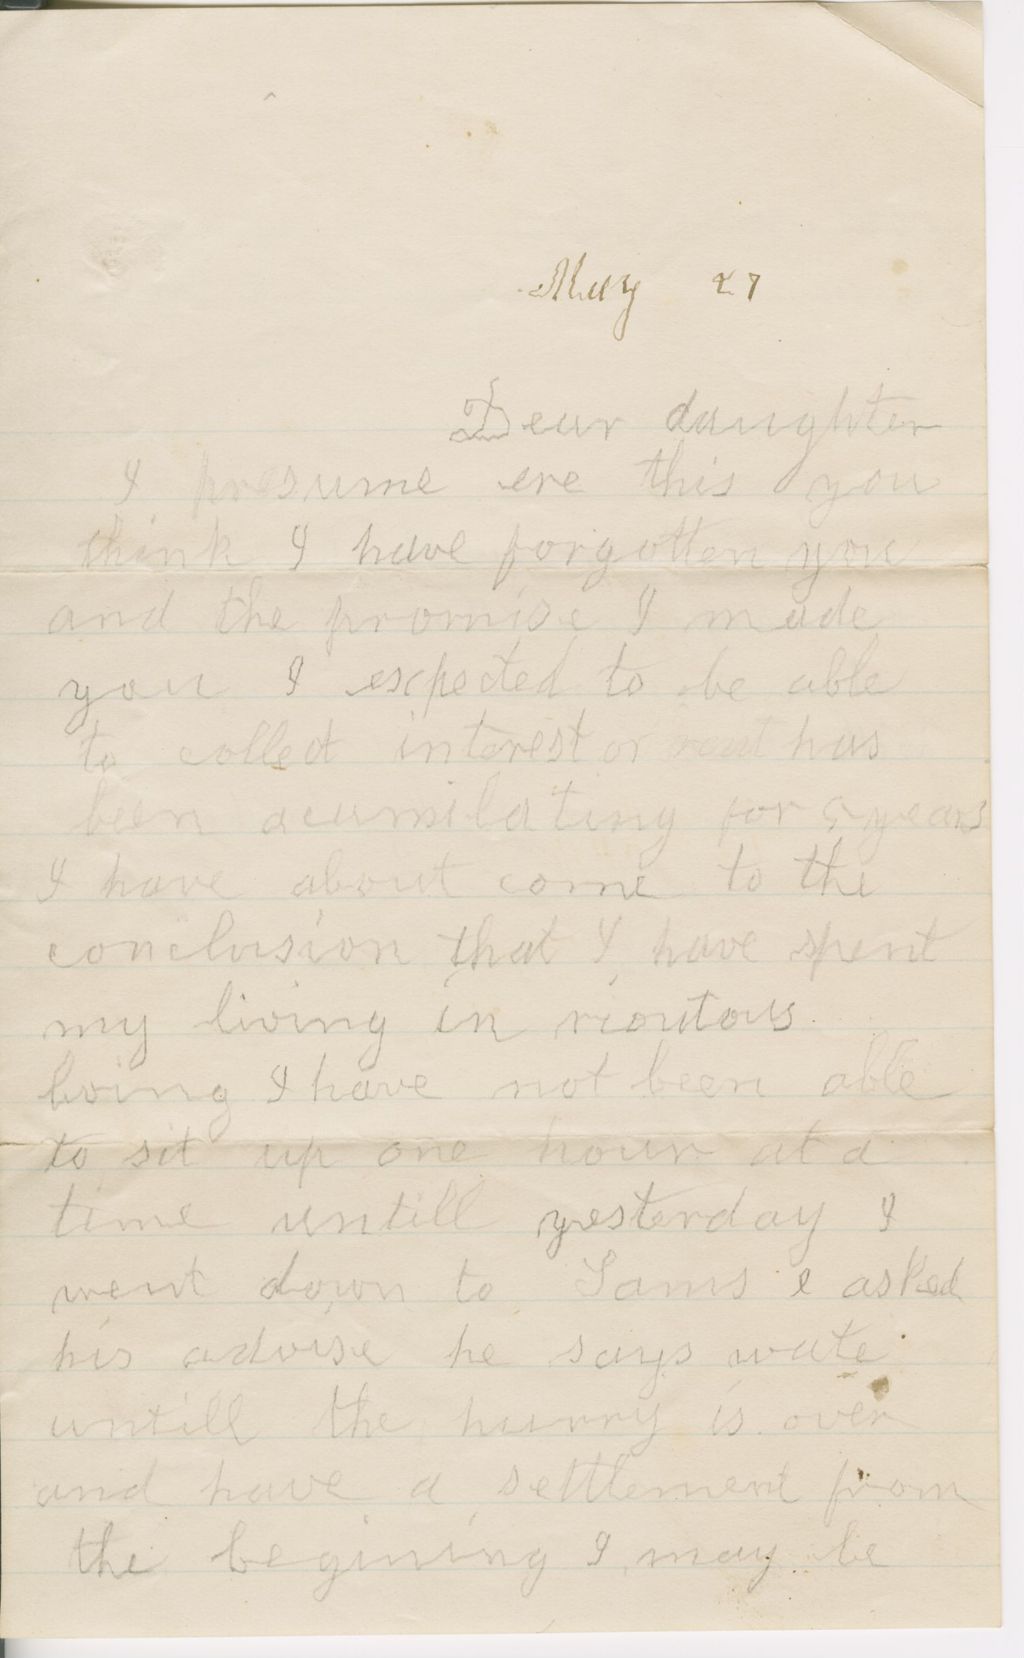 May 27
Dear daughter
I presume ere this you
think I have forgotten you
and the promise I made
you I expected to be able
to collect interest or rent has
been acumilating for 5 years
I have about come to the
conclusion that I have spent
my living in rioutous
living I have not been able
to sit up one hour at a
time untill yesterday I
went down to Sams & asked
his advise he says wate
untill the hurry is over
and have a settlement from
the begining I may be